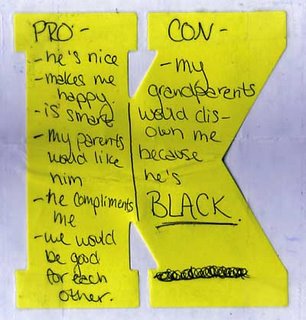 PRO -
- he's nice
- makes me
happy
- is smart
- my parents
would like
him
- he compliments
me
- we would
be good
for each
other.
CON -
- my
grandparents
would dis-
own me
because
he's
BLACK.